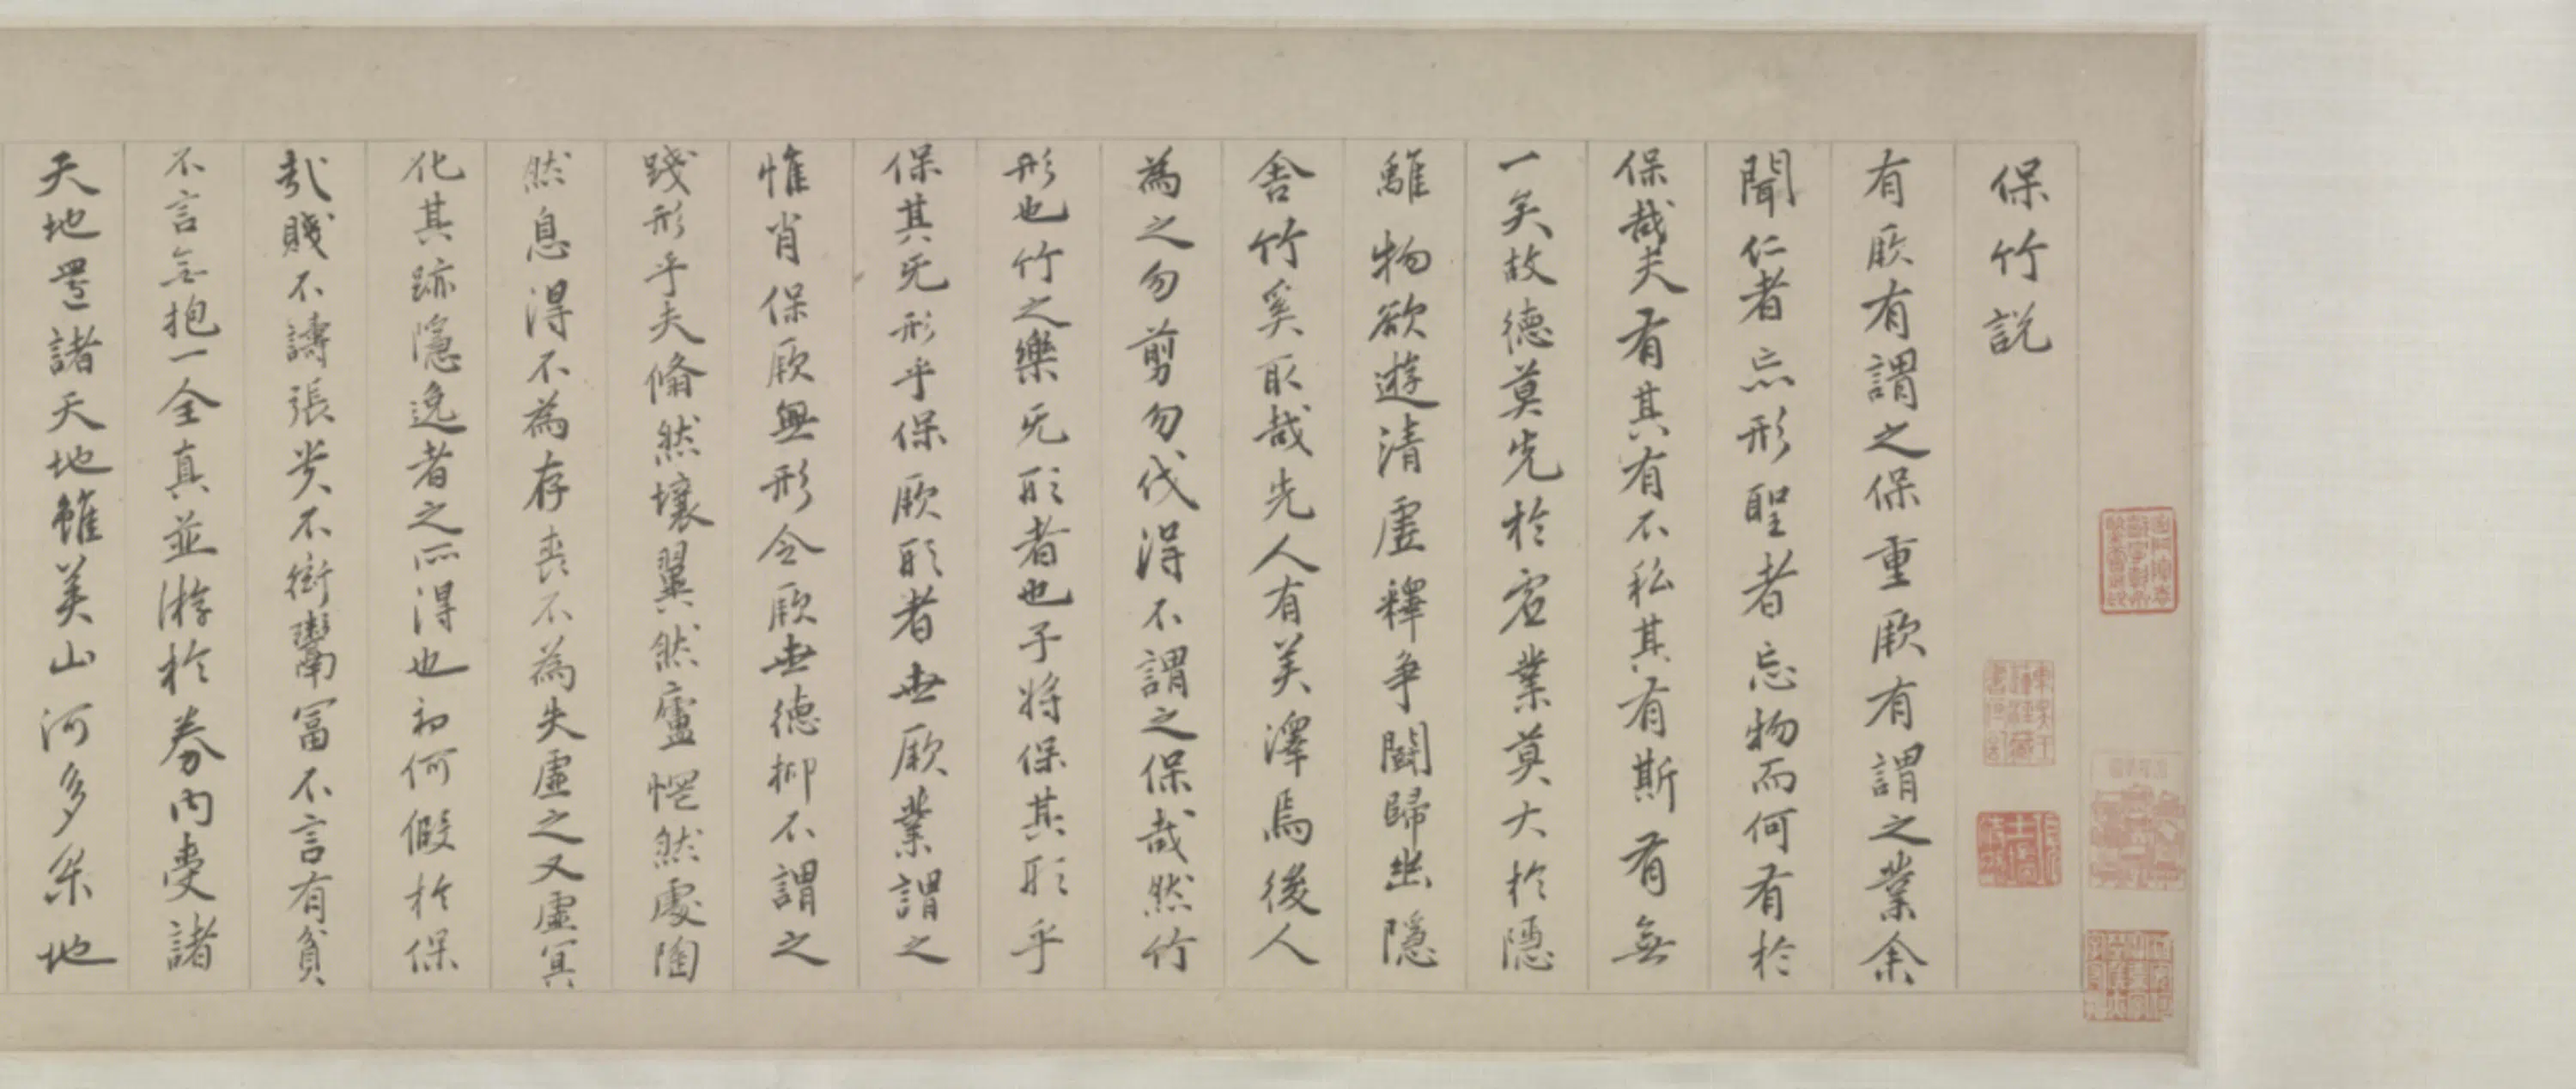 保竹説
有厥有謂之保重厥有謂之業余
聞仁者忘形聖者忘物而何有於
保哉夫有其有不私其有斯有無
一矣故德莫先於宏業莫大於隱
離物欲遊清虛釋爭鬭歸幽隱
舍竹奚取哉先人有美澤焉後人
為之勿剪勿伐得不謂之保哉然竹
形也竹之樂旡形者也子將保其形乎
保其旡形乎保厥形者世厥業謂之
惟肖保厥無形令厥世德抑不謂之
踐形乎夫翛然壤翼然廬恇然處陶
然息得不為存喪不為失虛之又虛冥
化其跡隱逸者之所得也初何假於保
哉賤不譸張貴不衒鬻富不言有貧
不言無抱一全真並游於券內受諸
天地還諸天地雖美山河多朱地